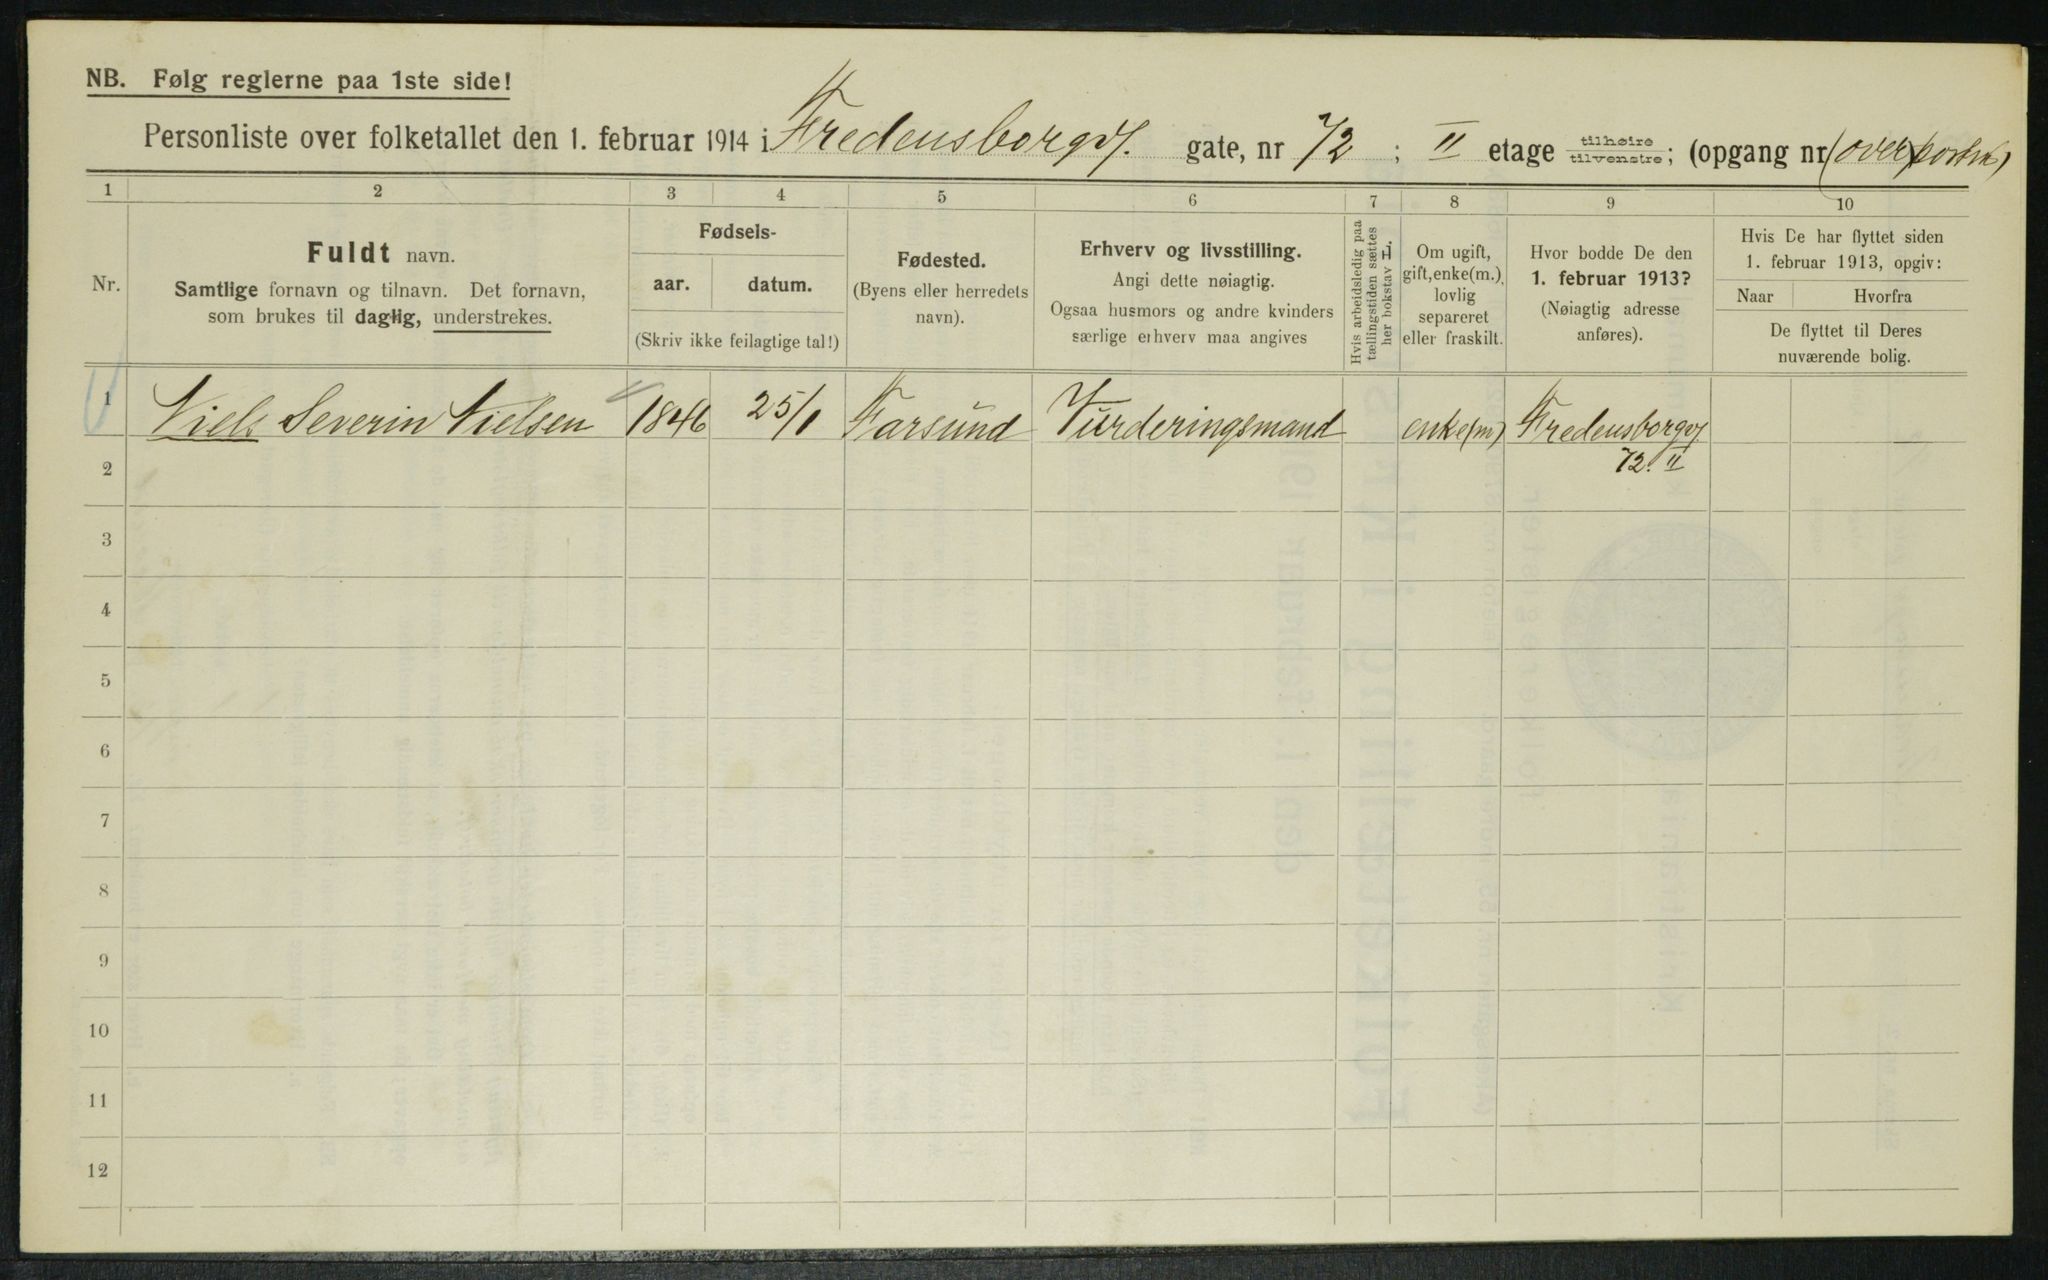 NB. Følg reglerne paa 1ste side!
Personliste over folketallet den 1. februar 1914 i Fredensborgv. gate, nr 72 ; II etage tilhøire tilvenstre; (opgang nr (over porten)
1 2 3 4 5 6 7 8 9 10
Nr.
Fuldt navn.
Samtlige fornavn og tilnavn. Det fornavn,
som brukes til daglig, understrekes.
Fødsels-
aar. datum.
(Skriv ikke feilagtige tal!)
Fødested.
(Byens eller herredets
navn).
Erhverv og livsstilling.
Angi dette nøiagtig.
Ogsaa husmors og andre kvinders
særlige erhverv maa angives
Hvis arbeidsledig paa
tællingstiden sættes
her bokstav L.
Om ugift,
gift, enke(m.),
lovlig
separeret
eller fraskilt.
Hvor bodde De den
1. februar 1913?
(Nøiagtig adresse
anføres).
Hvis De har flyttet siden
1. februar 1913, opgiv:
Naar Hvorfra
De flyttet til Deres
nuværende bolig.
1 Niels Severin Nielsen 1846 25/1 Farsund Vurderingsmand enke(m) Fredensborgv
2 72. II
3
4
5
6
7
8
9
10
11
12